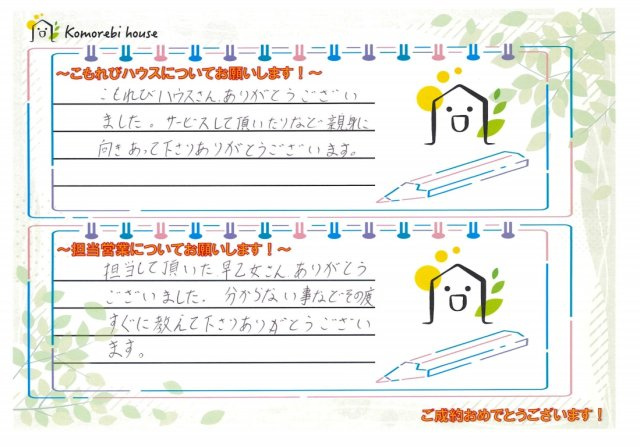 Komorebi house
～こもれびハウスについてお願いします！～
こもれびハウスさん、ありがとうござい
ました。サービスして頂いたりなど親身に
向きあって下さりありがとうございます。
～担当営業についてお願いします！～
担当して頂いた早乙女さん、ありがとう
ございました。分からない事などその度
すぐに教えて下さりありがとうござい
ます。
ご成約おめでとうございます！